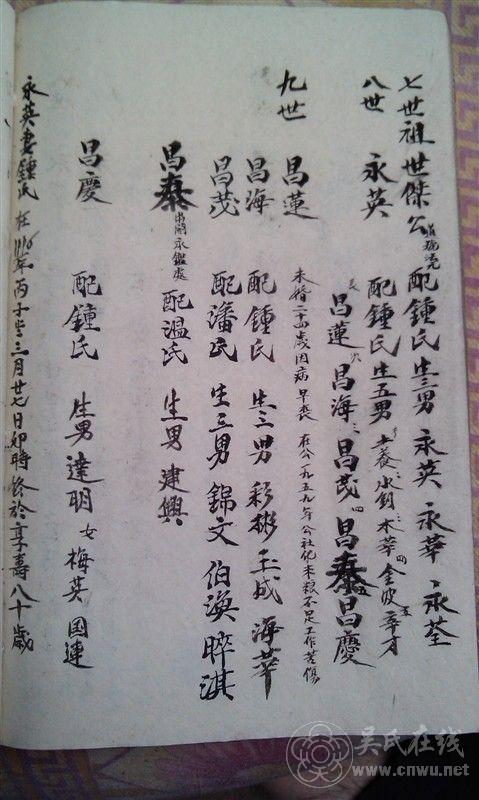 七世祖世傑公 配鍾氏 生三男 永英 永華 永荃
八世 永英 配鍾氏 生五男
長 昌蓮 次 昌海 三 昌茂 四 昌泰 五 昌慶
九世 昌蓮 未婚二十四歲因病早喪 在公一九五九年公社化米糧不足工作苦傷
昌海 配鍾氏 生三男 彩彬 玉成 海華
昌茂 配潘氏 生三男 錦文 伯渙 晬淇
昌泰 配温氏 生男 建興
昌慶 配鍾氏 生男 達明 女 梅英 国連
永英妻鍾氏 在 年丙子 三月廿七日卯時終於享壽八十歲
吴氏在线
www.cnwu.net